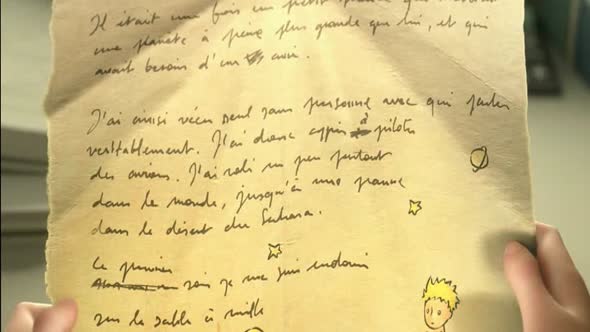 Il était une fois un petit prince qui
une planète à peine plus grande que lui, et qui
avait besoin d'un ami.
J'ai ainsi vécu seul sans personne avec qui parler
véritablement. J'ai donc appris à piloter
des avions. J'ai volé un peu partout
dans le monde, jusqu'à une panne
dans le désert du Sahara.
Ce premier
soir je me suis endormi
sur le sable à mille